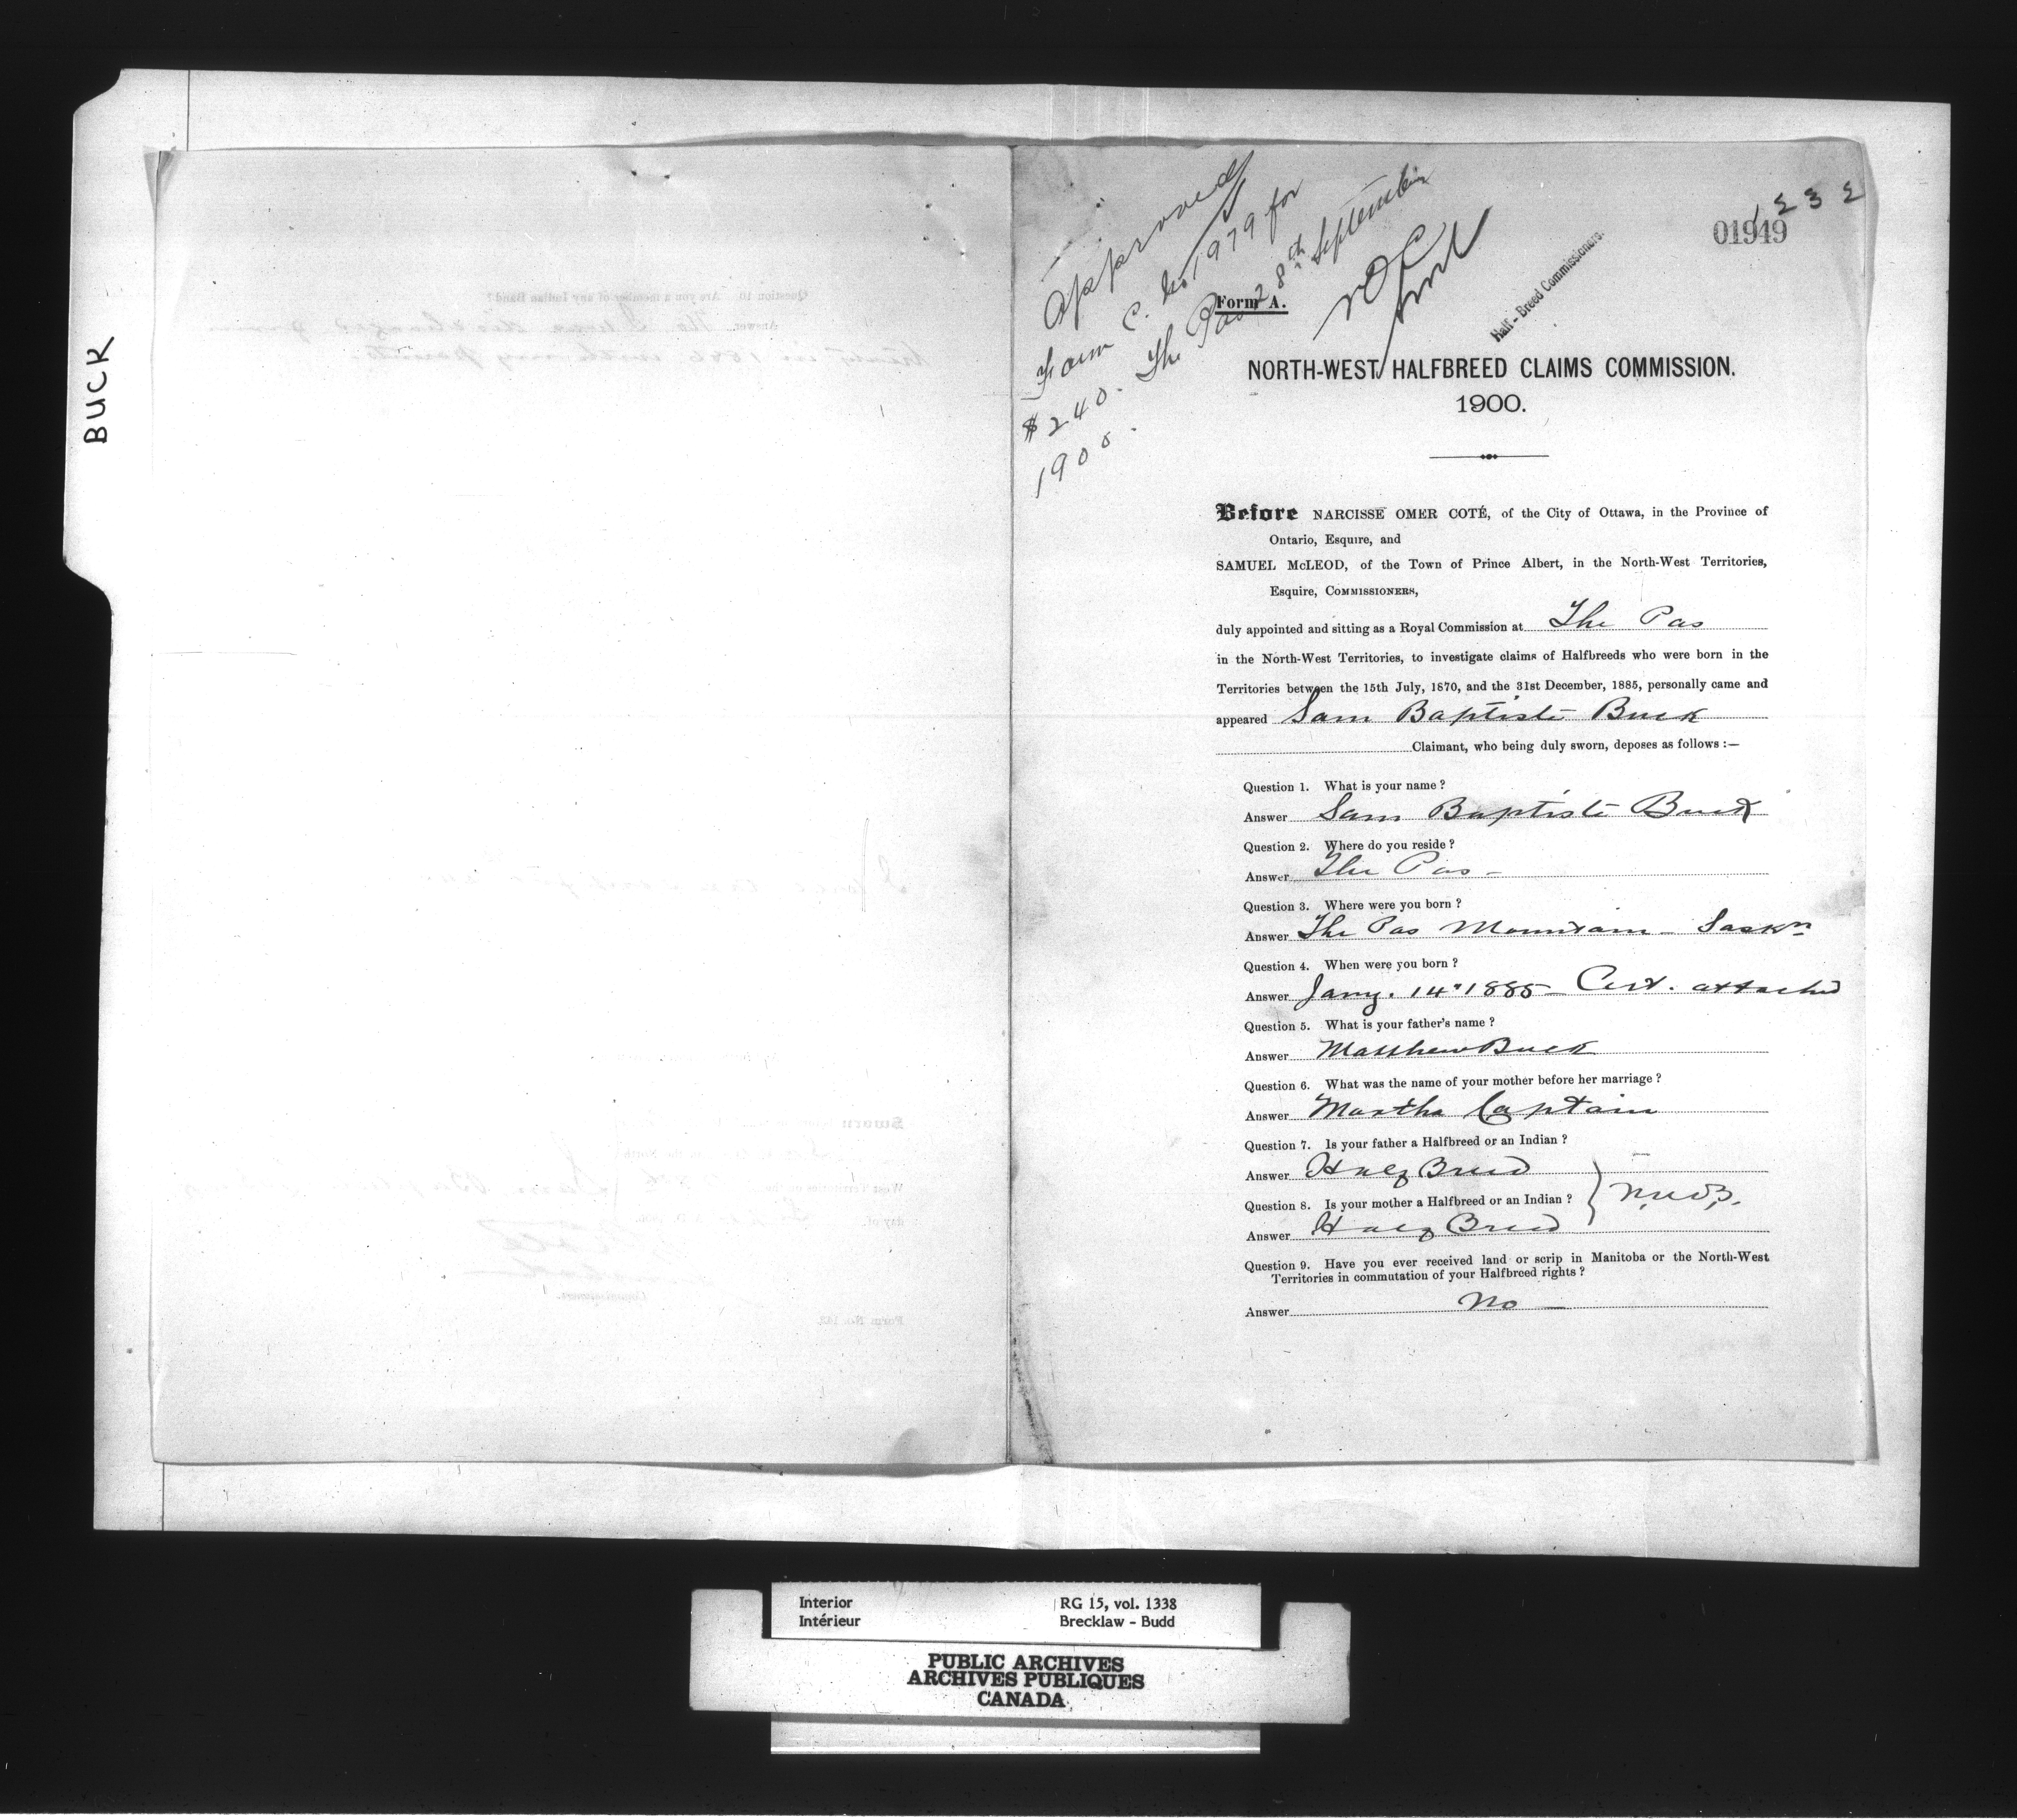 BUCK
Approved
Form C. No 1979 for
$240. The Pas 28th September
1900.
NOC
1232
01949
Half-Breed Commissioners.
Form A.
NORTH-WEST HALFBREED CLAIMS COMMISSION.
1900.
Before NARCISSE OMER COTÉ, of the City of Ottawa, in the Province of
Ontario, Esquire, and
SAMUEL McLEOD, of the Town of Prince Albert, in the North-West Territories,
Esquire, COMMISSIONERS,
duly appointed and sitting as a Royal Commission at The Pas
in the North-West Territories, to investigate claims of Halfbreeds who were born in the
Territories between the 15th July, 1870, and the 31st December, 1885, personally came and
appeared Sam Baptiste Buck
Claimant, who being duly sworn, deposes as follows :—
Question 1. What is your name ?
Answer Sam Baptiste Buck
Question 2. Where do you reside ?
Answer The Pas -
Question 3. Where were you born ?
Answer The Pas Mountain - Saskn
Question 4. When were you born ?
Answer Jany. 14" 1885 - Cert. attached
Question 5. What is your father's name ?
Answer Matthew Buck
Question 6. What was the name of your mother before her marriage ?
Answer Martha Captain
Question 7. Is your father a Halfbreed or an Indian ?
Answer Half Breed
Question 8. Is your mother a Halfbreed or an Indian ?
Answer Half Breed
Question 9. Have you ever received land or scrip in Manitoba or the North-West
Territories in commutation of your Halfbreed rights ?
Answer No
Interior RG 15, vol. 1338
Intérieur Brecklaw - Budd
PUBLIC ARCHIVES
ARCHIVES PUBLIQUES
CANADA